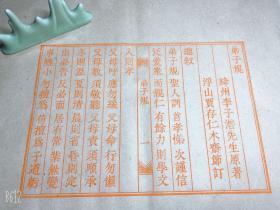 弟子規
絳州李子潛先生原著
浮山賈存仁木齋節訂
總敘
弟子規 聖人訓 首孝悌 次謹信
泛愛衆 而親仁 有餘力 則學文
弟子規 一
入則孝
父母呼 應勿緩 父母命 行勿懶
父母教 須敬聽 父母責 須順承
冬則溫 夏則凊 晨則省 昏則定
出必告 反必面 居有常 業無變
事雖小 勿擅為 苟擅為 子道虧